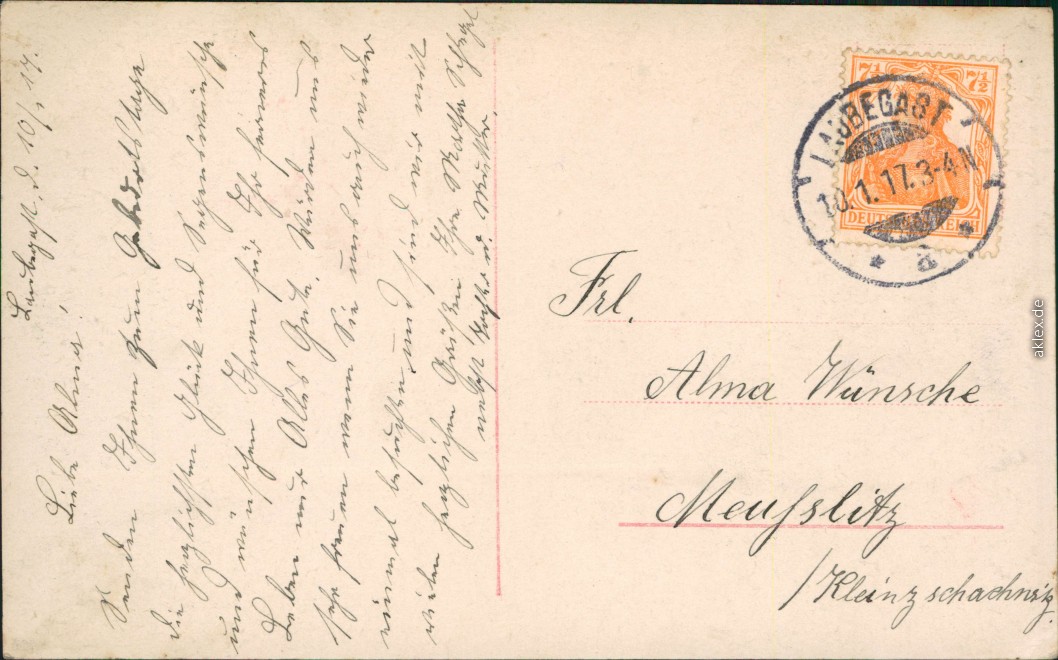 Laubegast, d. 10/1. 17.
Liebe Alma!
Senden Ihnen zum Geburtstage
die herzlichsten Glück und Segenswünsche
und wünschen Ihnen für Ihr ferneres
Leben nur Alles Gute. Würden uns
sehr freuen wenn Sie uns auch wieder
einmal besuchten und sind wir mit
vielen herzlichen Grüßen Ihre Martha
nebst u. Mutter.
7½ 7½
DEUTSCHES REICH
LAUBEGAST
10.1.17.3-4N
* a *
Frl.
Alma Wünsche
Meußlitz
/Kleinzschachwitz.
aklex.de